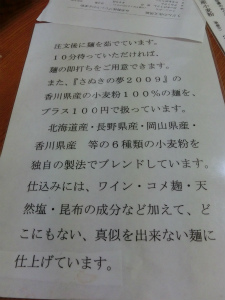 注文後に麺を茹でています。
１０分待っていただければ、
麺の即打ちをご用意できます。
また、『さぬきの夢２００９』の
香川県産の小麦粉１００％の麺を、
プラス１００円で扱っています。
北海道産・長野県産・岡山県産・
香川県産　等の６種類の小麦粉を
独自の製法でブレンドしています。
仕込みには、ワイン・コメ麹・天
然塩・昆布の成分など加えて、ど
こにもない、真似を出来ない麺に
仕上げています。